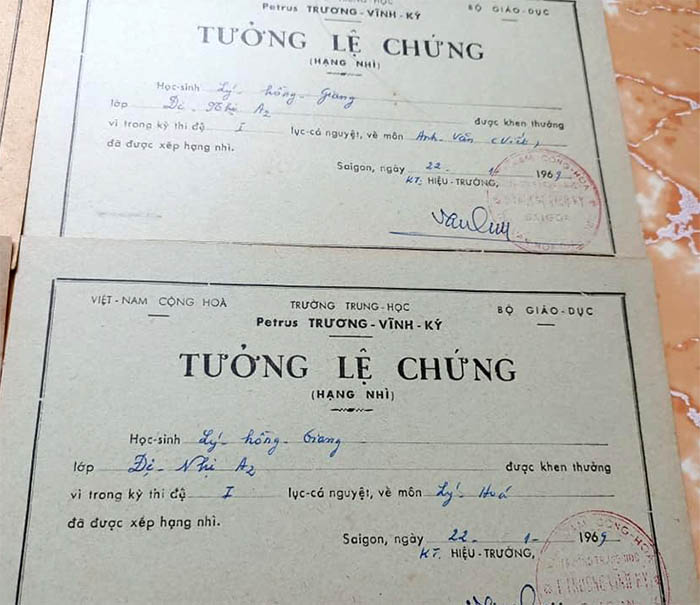 BỘ GIÁO-DỤC
Petrus TRƯƠNG-VĨNH-KÝ
TƯỞNG LỆ CHỨNG
(HẠNG NHÌ)
Học-sinh Lý-hồng-Giang
lớp Đệ-Nhị A2 được khen thưởng
vì trong kỳ thi độ I lục-cá nguyệt, về môn Anh-Văn (Viết)
đã được xếp hạng nhì.
Saigon, ngày 22-1-1969
KT. HIỆU-TRƯỞNG,
VIỆT-NAM CỘNG HOÀ TRƯỜNG TRUNG-HỌC BỘ GIÁO-DỤC
Petrus TRƯƠNG-VĨNH-KÝ
TƯỞNG LỆ CHỨNG
(HẠNG NHÌ)
Học-sinh Lý-hồng-Giang
lớp Đệ-Nhị A2 được khen thưởng
vì trong kỳ thi độ I lục-cá nguyệt, về môn Lý-Hoá
đã được xếp hạng nhì.
Saigon, ngày 22-1-1969
KT. HIỆU-TRƯỞNG,